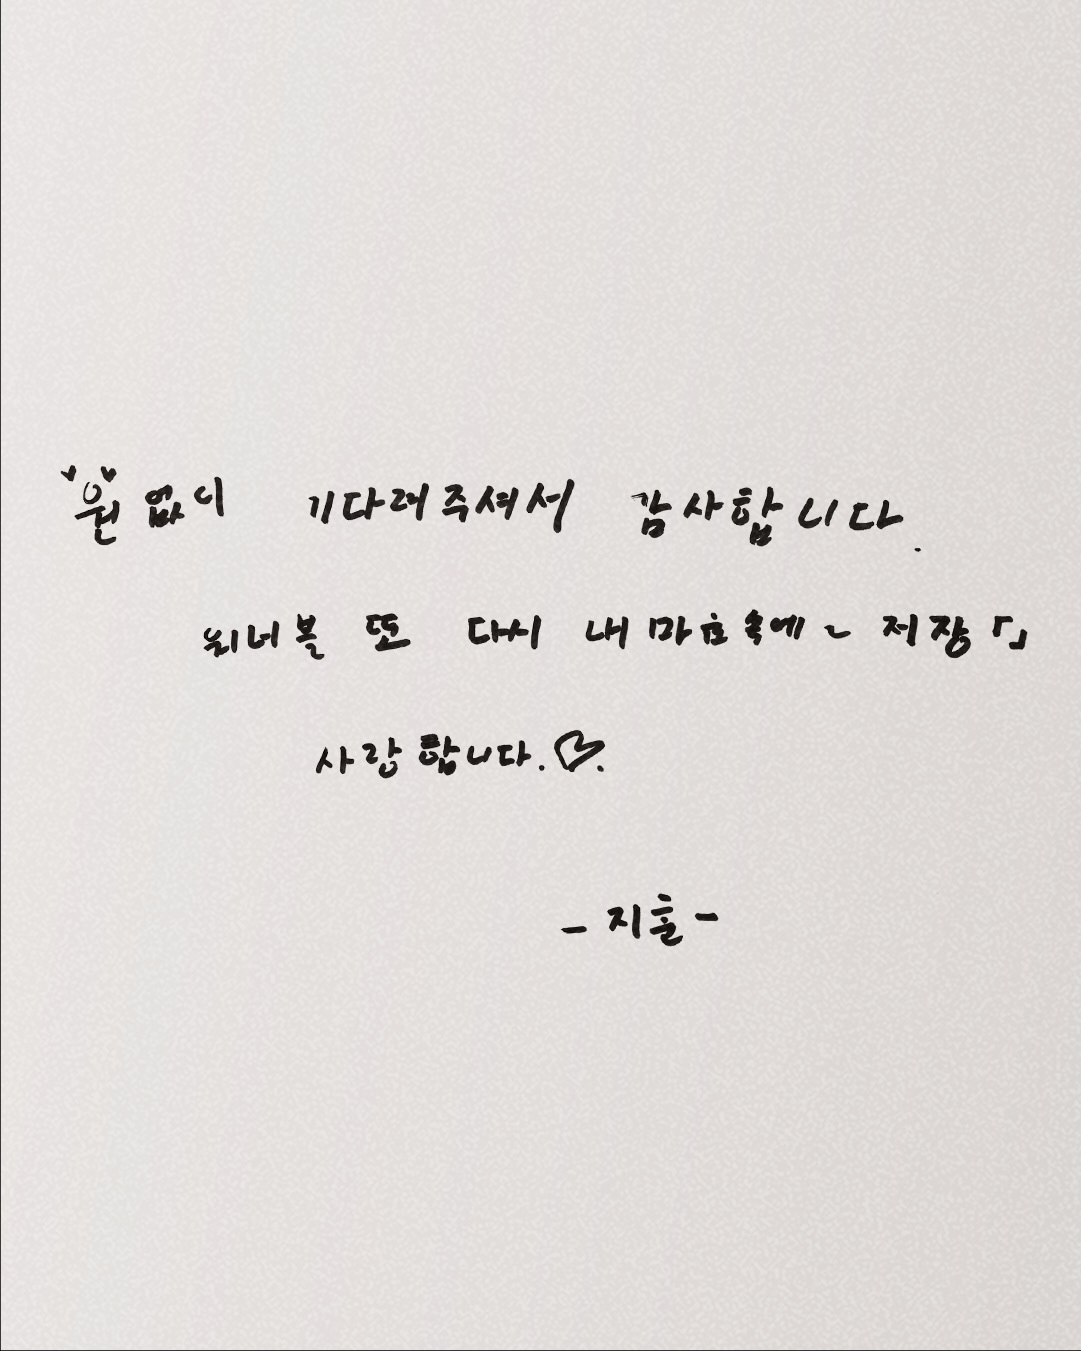 "원"없이 기다려주셔서 감사합니다.
워너블 또 다시 내 마음속에~ 저장「」
사랑합니다.♡.
- 지훈 -